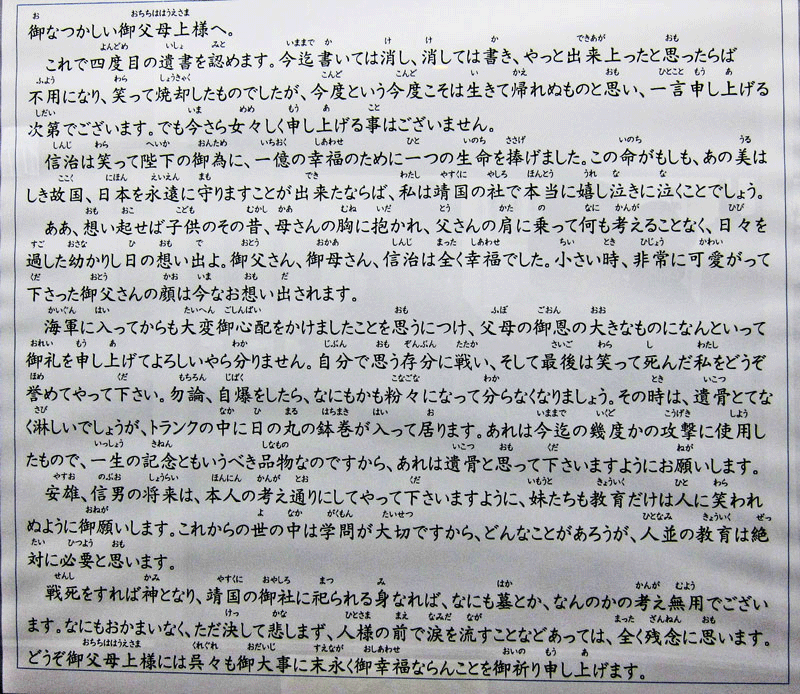 御なつかしい御父母上様へ。
これで四度目の遺書を認めます。今迄書いては消し、消しては書き、やっと出来上ったと思ったらば
不用になり、笑って焼却したものでしたが、今度という今度こそは生きて帰れぬものと思い、一言申し上げる
次第でございます。でも今さら女々しく申し上げる事はございません。
信治は笑って陛下の御為に、一億の幸福のために一つの生命を捧げました。この命がもしも、あの美は
しき故国、日本を永遠に守りますことが出来たならば、私は靖国の社で本当に嬉し泣きに泣くことでしょう。
ああ、想い起せば子供のその昔、母さんの胸に抱かれ、父さんの肩に乗って何も考えることなく、日々を
過した幼かりし日の想い出よ。御父さん、御母さん、信治は全く幸福でした。小さい時、非常に可愛がって
下さった御父さんの顔は今なお想い出されます。
海軍に入ってからも大変御心配をかけましたことを思うにつけ、父母の御恩の大きなものになんといって
御礼を申し上げてよろしいやら分りません。自分で思う存分に戦い、そして最後は笑って死んだ私をどうぞ
誉めてやって下さい。勿論、自爆をしたら、なにもかも粉々になって分らなくなりましょう。その時は、遺骨とてな
く淋しいでしょうが、トランクの中に日の丸の鉢巻が入って居ります。あれは今迄の幾度かの攻撃に使用し
たもので、一生の記念ともいうべき品物なのですから、あれは遺骨と思って下さいますようにお願いします。
安雄、信男の将来は、本人の考え通りにしてやって下さいますように、妹たちも教育だけは人に笑われ
ぬように御願いします。これからの世の中は学問が大切ですから、どんなことがあろうが、人並の教育は絶
対に必要と思います。
戦死をすれば神となり、靖国の御社に祀られる身なれば、なにも墓とか、なんのかの考え無用でござい
ます。なにもおかまいなく、ただ決して悲しまず、人様の前で涙を流すことなどあっては、全く残念に思います。
どうぞ御父母上様には呉々も御大事に末永く御幸福ならんことを御祈り申し上げます。